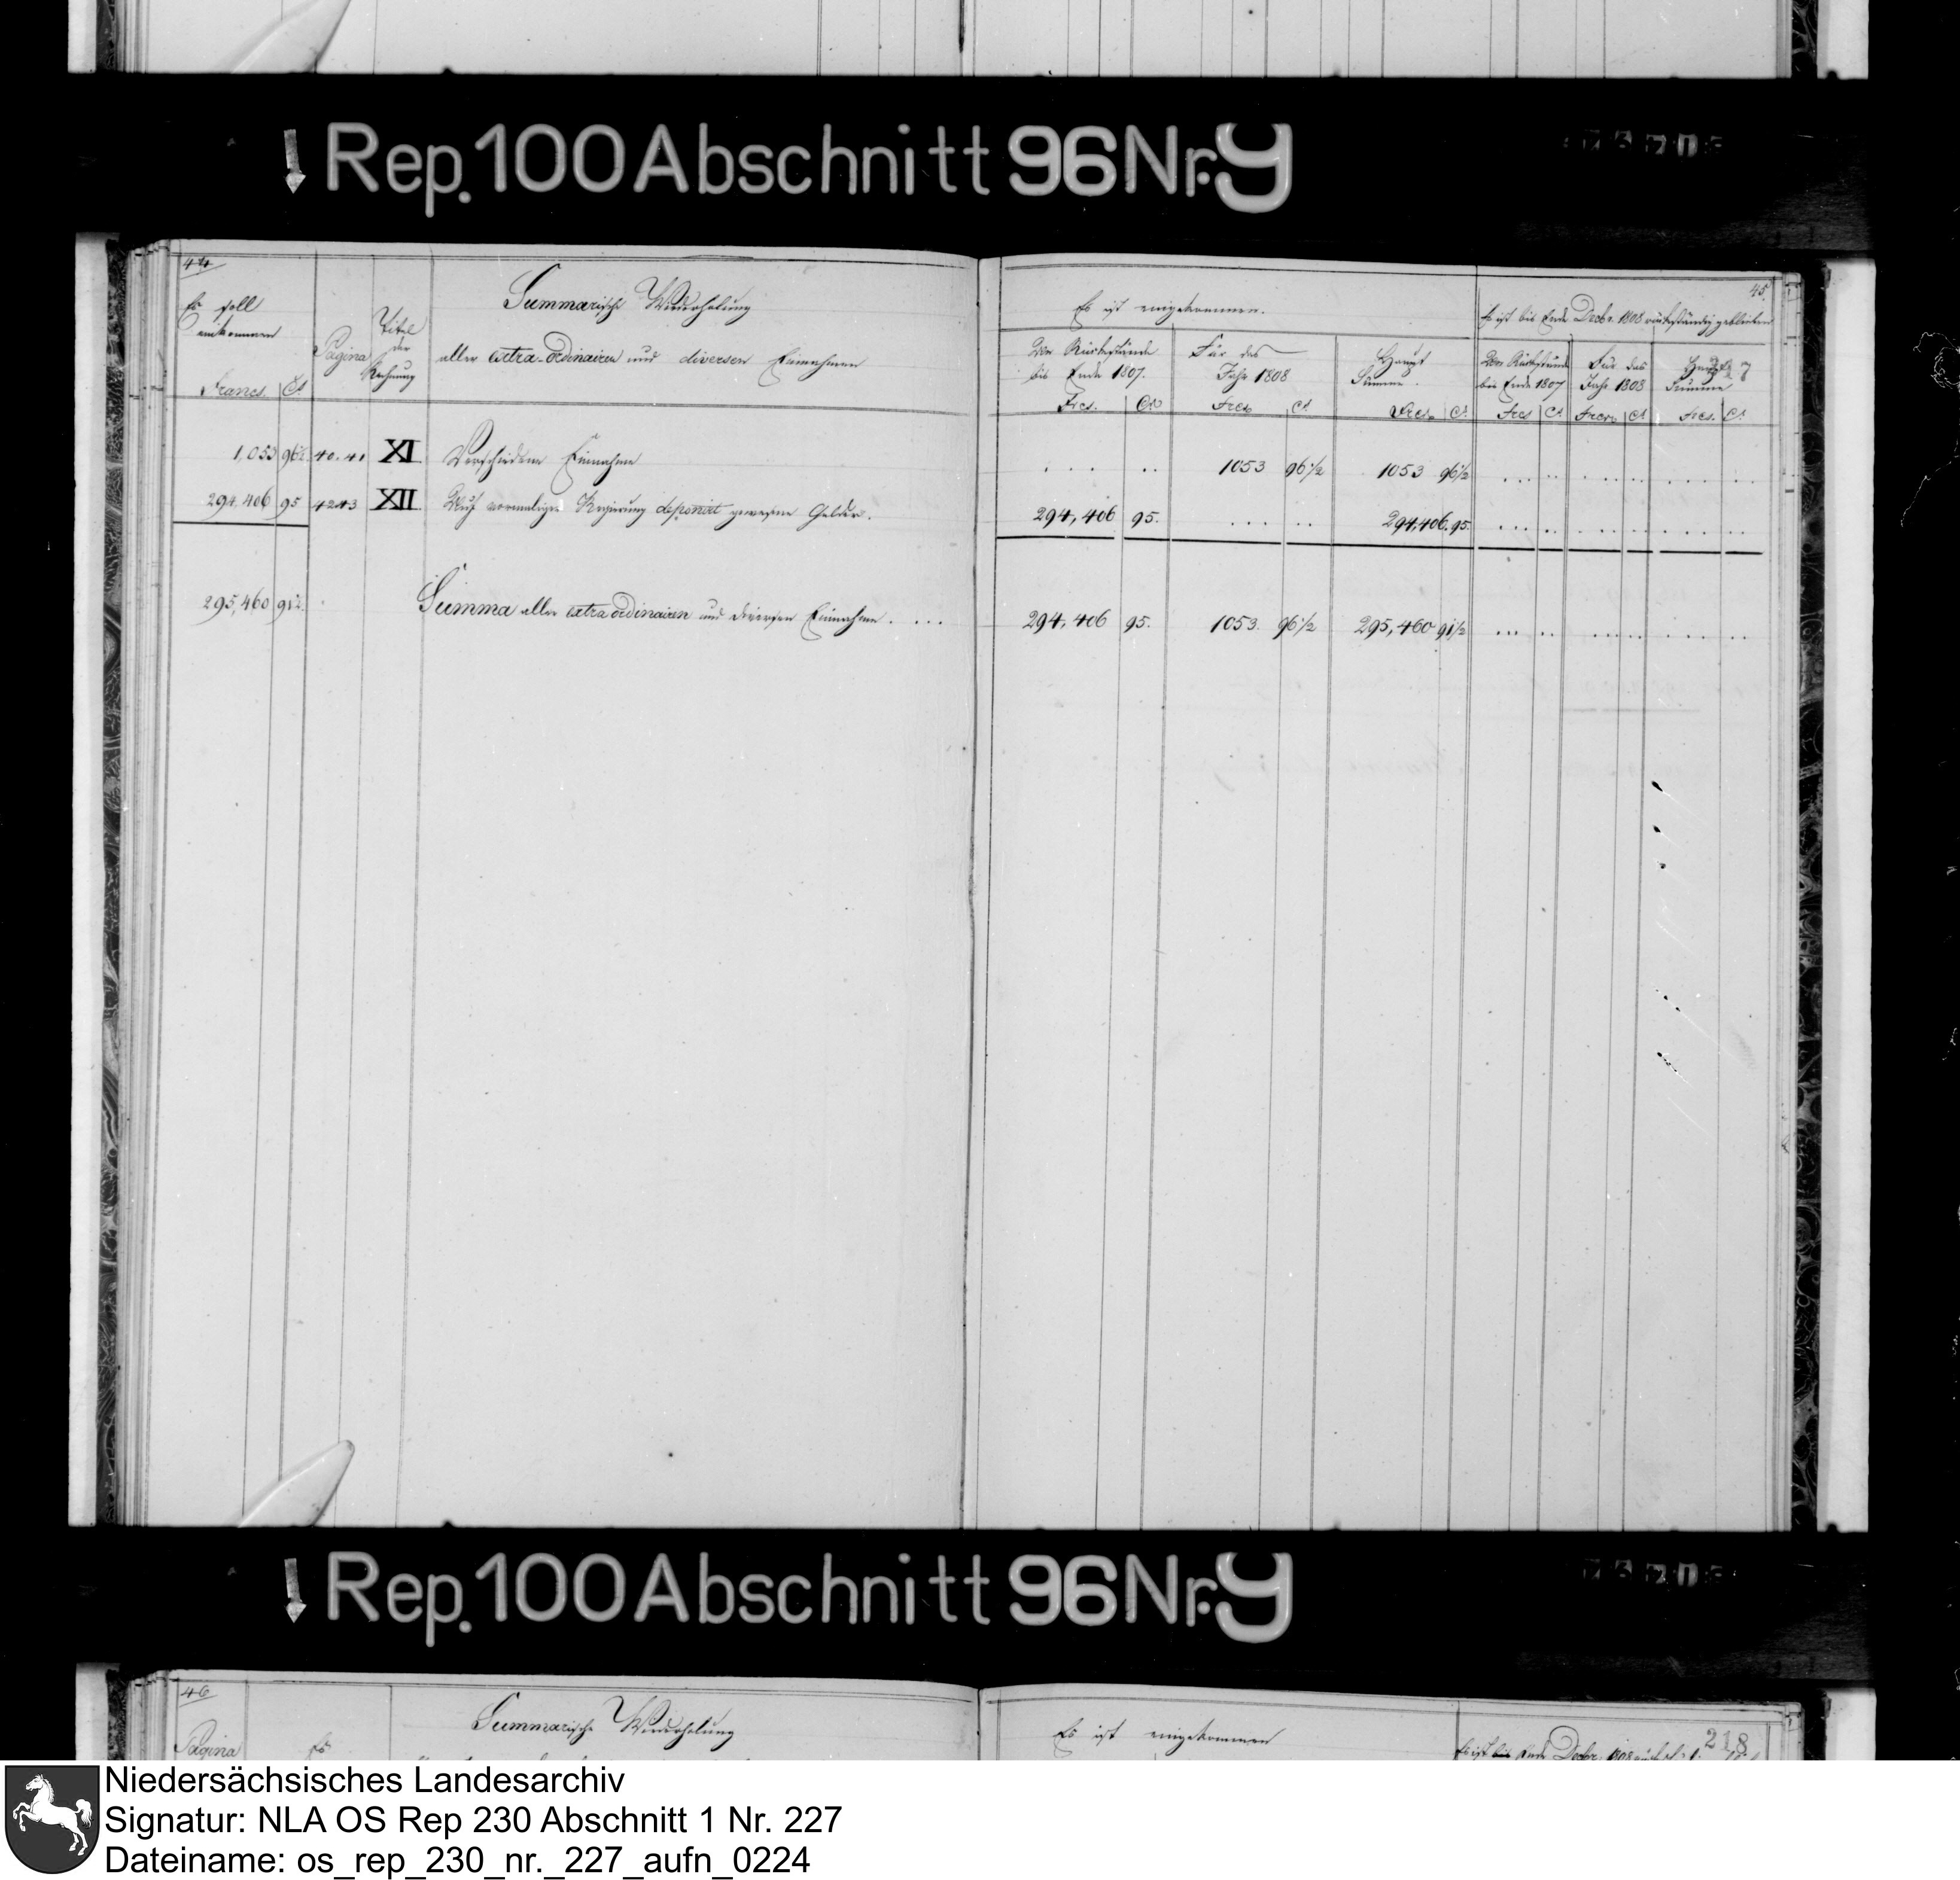 Rep. 100 Abschnitt 96 Nr. 9
44
45.
Es soll
einkommen
Francs. Ct
Pagina
Titel
der
Rechnung
Summarische Wiederholung
aller extra-ordinairen und diversen Einnahmen
Es ist eingekommen.
Von Rückstände
bis Ende 1807.
Frcs. Ct
Für das
Jahr 1808
Frcs Ct
Haupt
Summe.
Frcs Ct
Es ist bis Ende Decbr. 1808 rückständig geblieben
Von Rückstände
bis Ende 1807
Frcs Ct
Für das
Jahr 1808
Frcs Ct
Haupt
Summe
Frcs. Ct
1,053 96 1/2 40. 41 XI Verschiedene Einnahme . . . . . 1053 96 1/2 1053 96 1/2
294,406 95 42 43 XII. Auf vormaliger Regierung deponirt gewesene Gelder. 294,406 95. . . . . . 294,406. 95.
295,460 91 1/2. Summa aller extraordinairen und diversen Einnahme. . . . 294,406 95. 1053. 96 1/2 295,460 91 1/2
Rep. 100 Abschnitt 96 Nr. 9
46
Pagina
Es
Summarische Wiederholung
Es ist eingekommen
Es ist bis Ende Decbr. 1808
218
Niedersächsisches Landesarchiv
Signatur: NLA OS Rep 230 Abschnitt 1 Nr. 227
Dateiname: os_rep_230_nr._227_aufn_0224